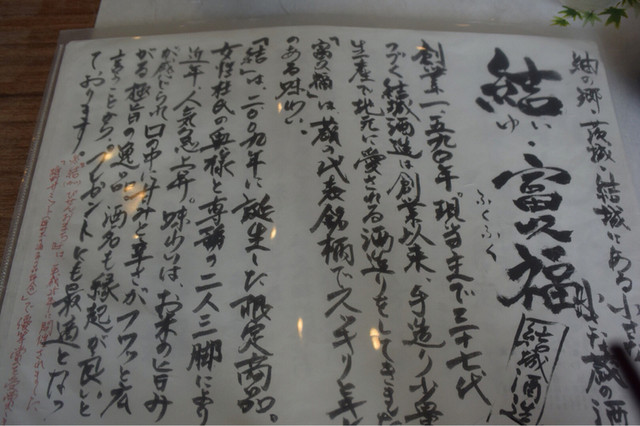 紬の郷、茨城・結城にある小さな
小さな蔵の酒
結・富久福
ゆい
ふくふく
結城酒造
創業一五九〇年。現当主で三十七代
つづく結城酒造は創業以来、手造り少量
生産で地元に愛される酒造りをしてきました
「富久福」は、蔵の代表銘柄でスッキリと
のある味わい。
「結」は、二〇〇九年に誕生した限定商品。
女性杜氏の奥様と専務の二人三脚により
近年、人気急上昇。味わいは、お米の旨み
が感じられ口の中に甘みと辛さがフワッと広
がる極旨の逸品。酒名も縁起が良いと
言うことから、プレゼントにも最適となっ
ております。